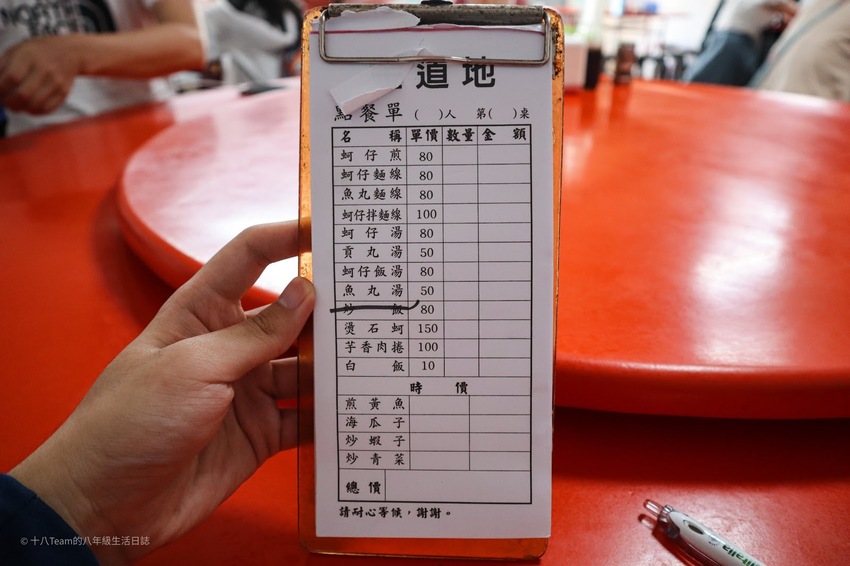 道地
點餐單 (　)人 第(　)桌
名稱 單價 數量 金額
蚵仔煎 80
蚵仔麵線 80
魚丸麵線 80
蚵仔拌麵線 100
蚵仔湯 80
貢丸湯 50
蚵仔飯湯 80
魚丸湯 50
炒飯 80
燙石蚵 150
芋香肉捲 100
白飯 10
時價
煎黃魚
海瓜子
炒蝦子
炒青菜
總價
請耐心等候，謝謝。
© 十八Team的八年級生活日誌